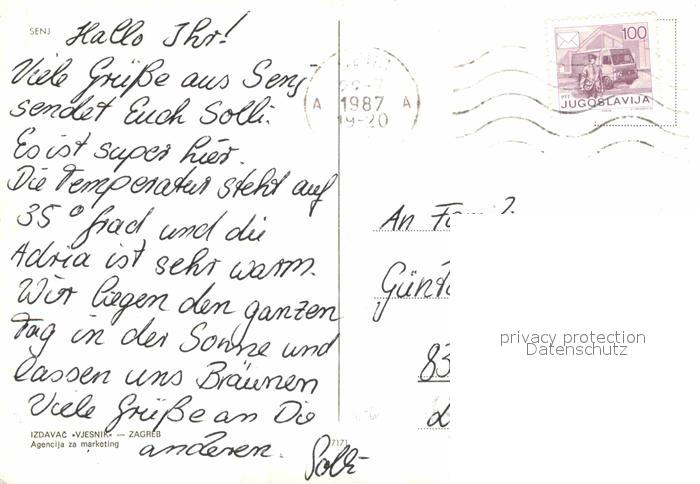 SENJ
Hallo Ihr!
Viele Grüße aus Senj
sendet Euch Solli.
Es ist super hier.
Die Temperatur steht auf
35° grad und die
Adria ist sehr warm.
Wir liegen den ganzen
Tag in der Sonne und
lassen uns Bräunen
Viele Grüße an Die
anderen.
Solli
IZDAVAČ •VJESNIK• — ZAGREB
Agencija za marketing
7171
A 1987 A
19-20
100
PTT
JUGOSLAVIJA
An
83
privacy protection
Datenschutz